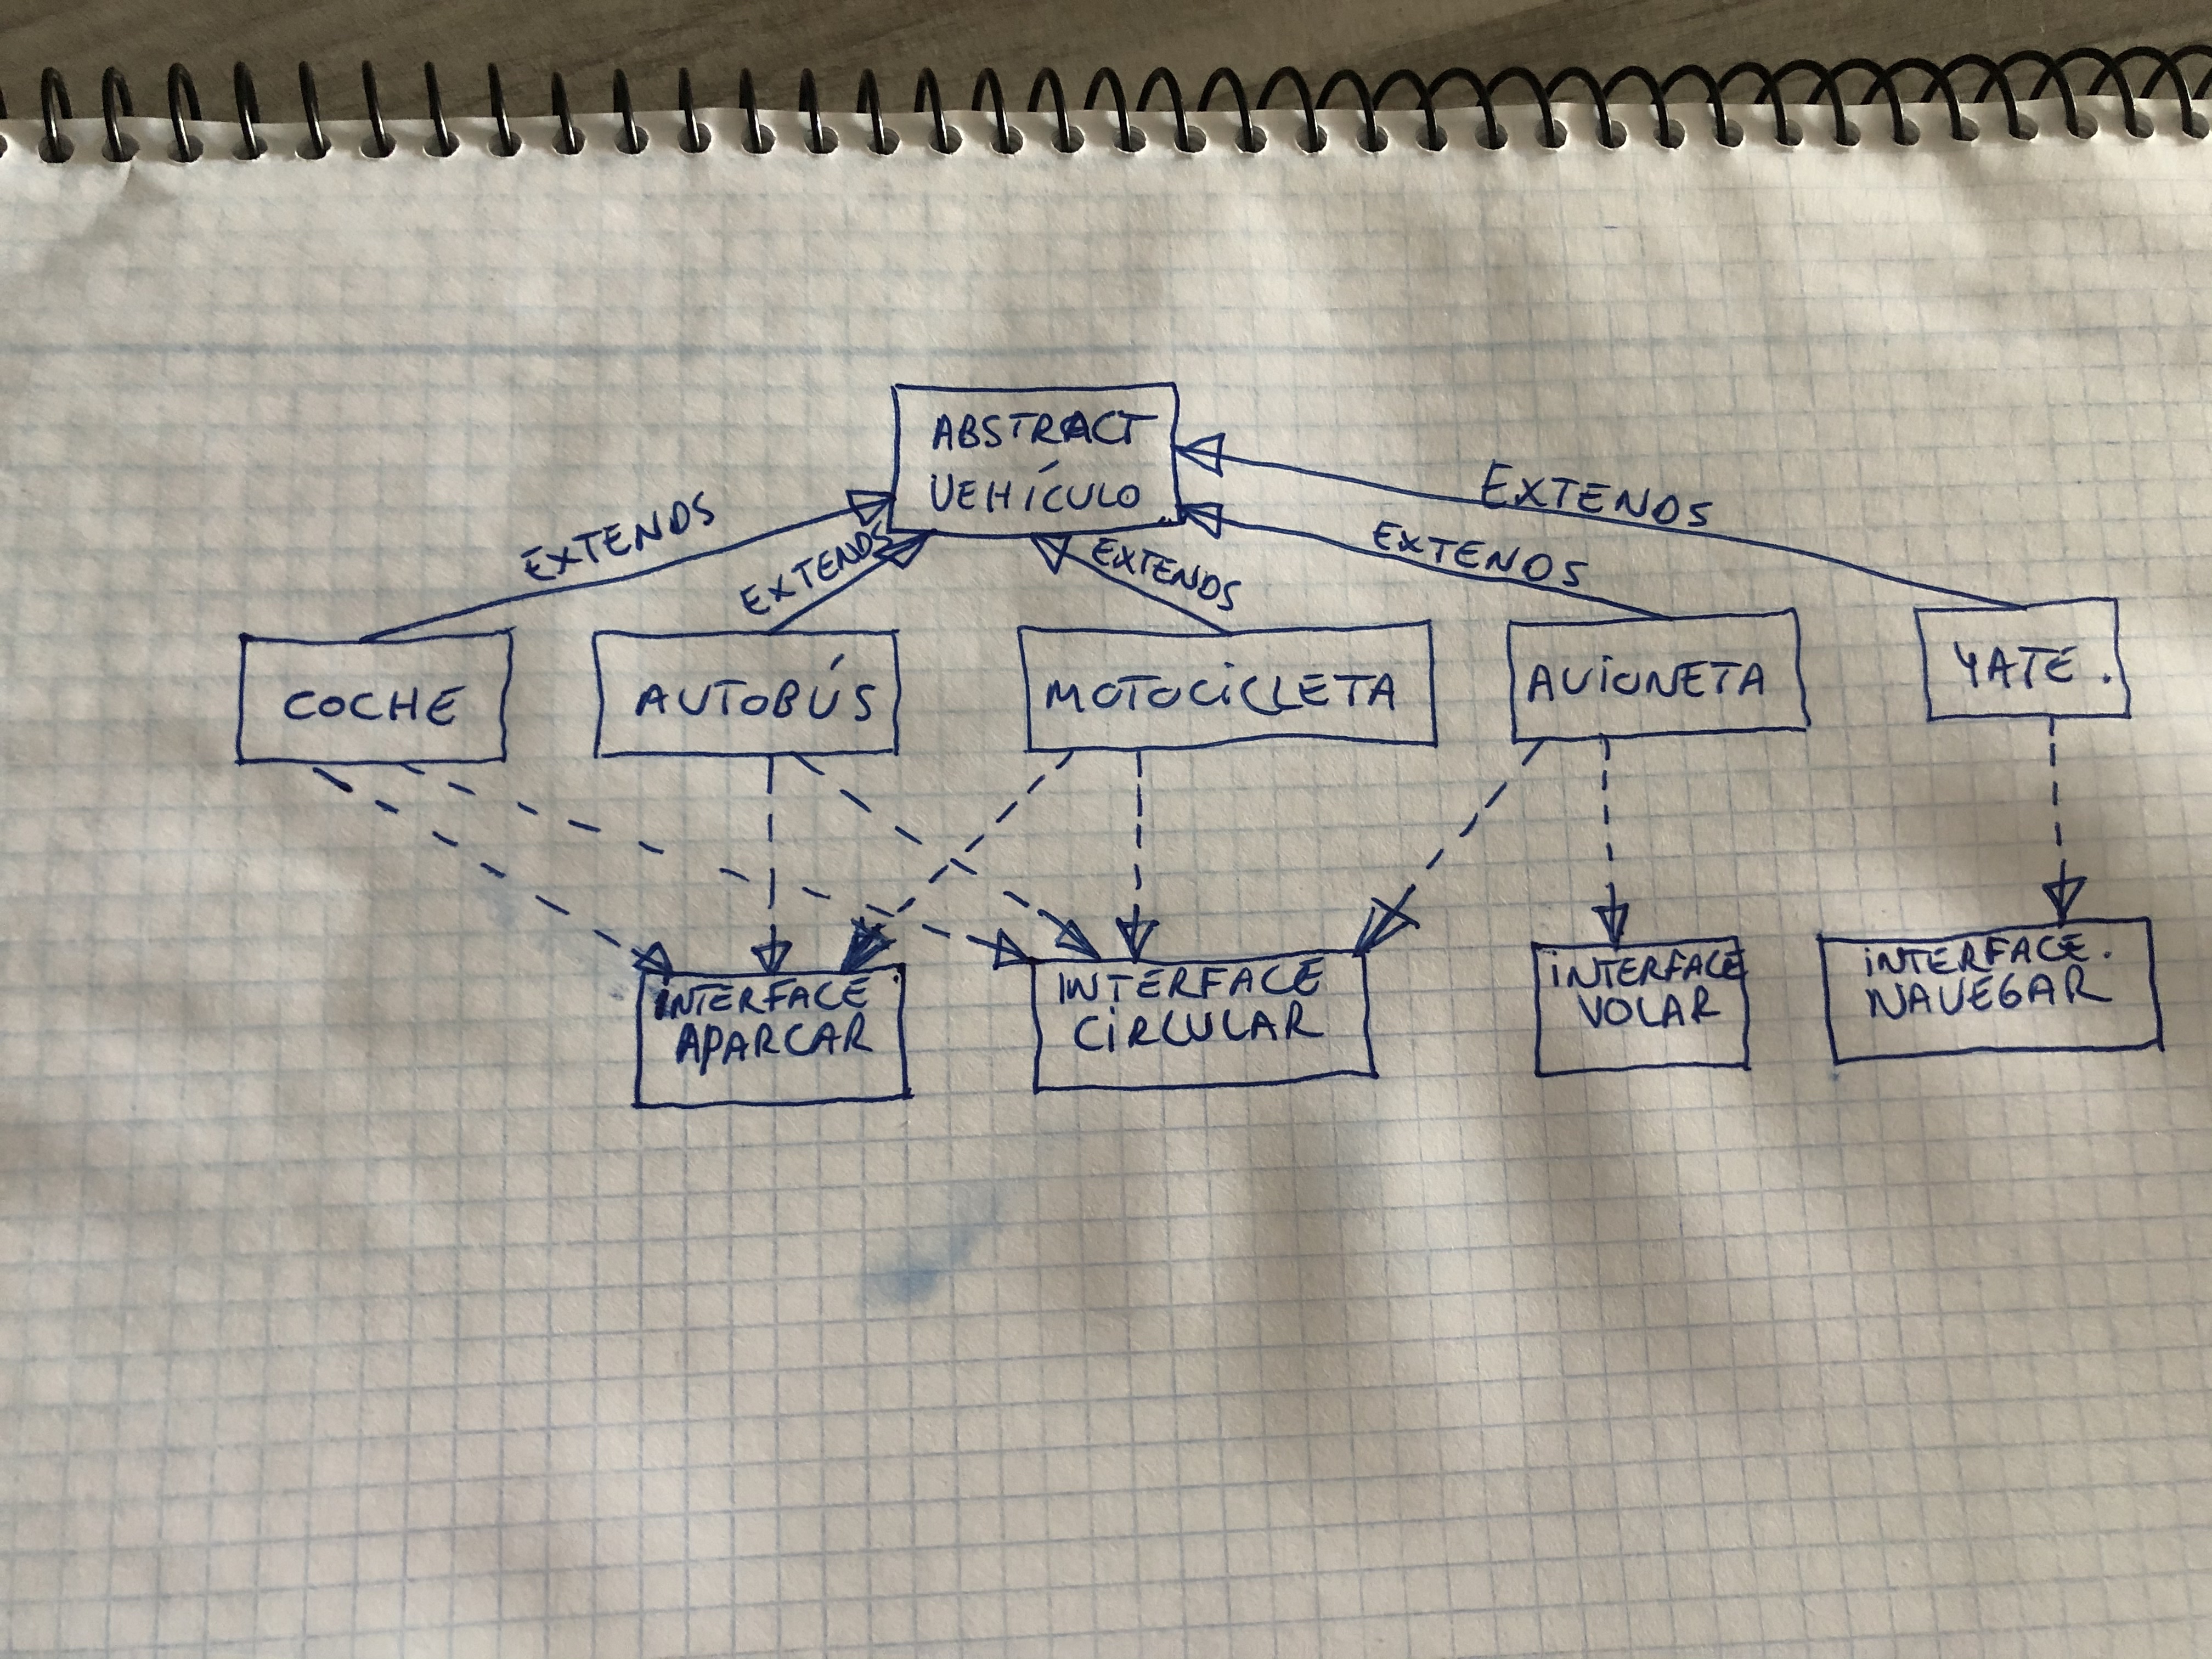 ABSTRACT
VEHÍCULO
EXTENDS
EXTENDS
EXTENDS
EXTENDS
EXTENDS
COCHE
AUTOBÚS
MOTOCICLETA
AVIONETA
YATE.
INTERFACE
APARCAR
INTERFACE
CIRCULAR
INTERFACE
VOLAR
INTERFACE.
NAVEGAR